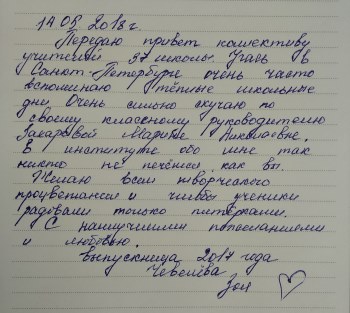 14.09.2018 г.
Передаю привет коллективу
учителей 37 школы. Учась в
Санкт-Петербурге очень часто
вспоминаю тёплые школьные
дни. Очень сильно скучаю по
своему классному руководителю
Захаровой Марине Николаевне.
В институте обо мне так
никто не печётся как вы.
Желаю всем творческого
процветания и чтобы ученики
радовали только пятёрками.
С наилучшими пожеланиями
и любовью.
выпускница 2017 года
Чевелёва
Зоя